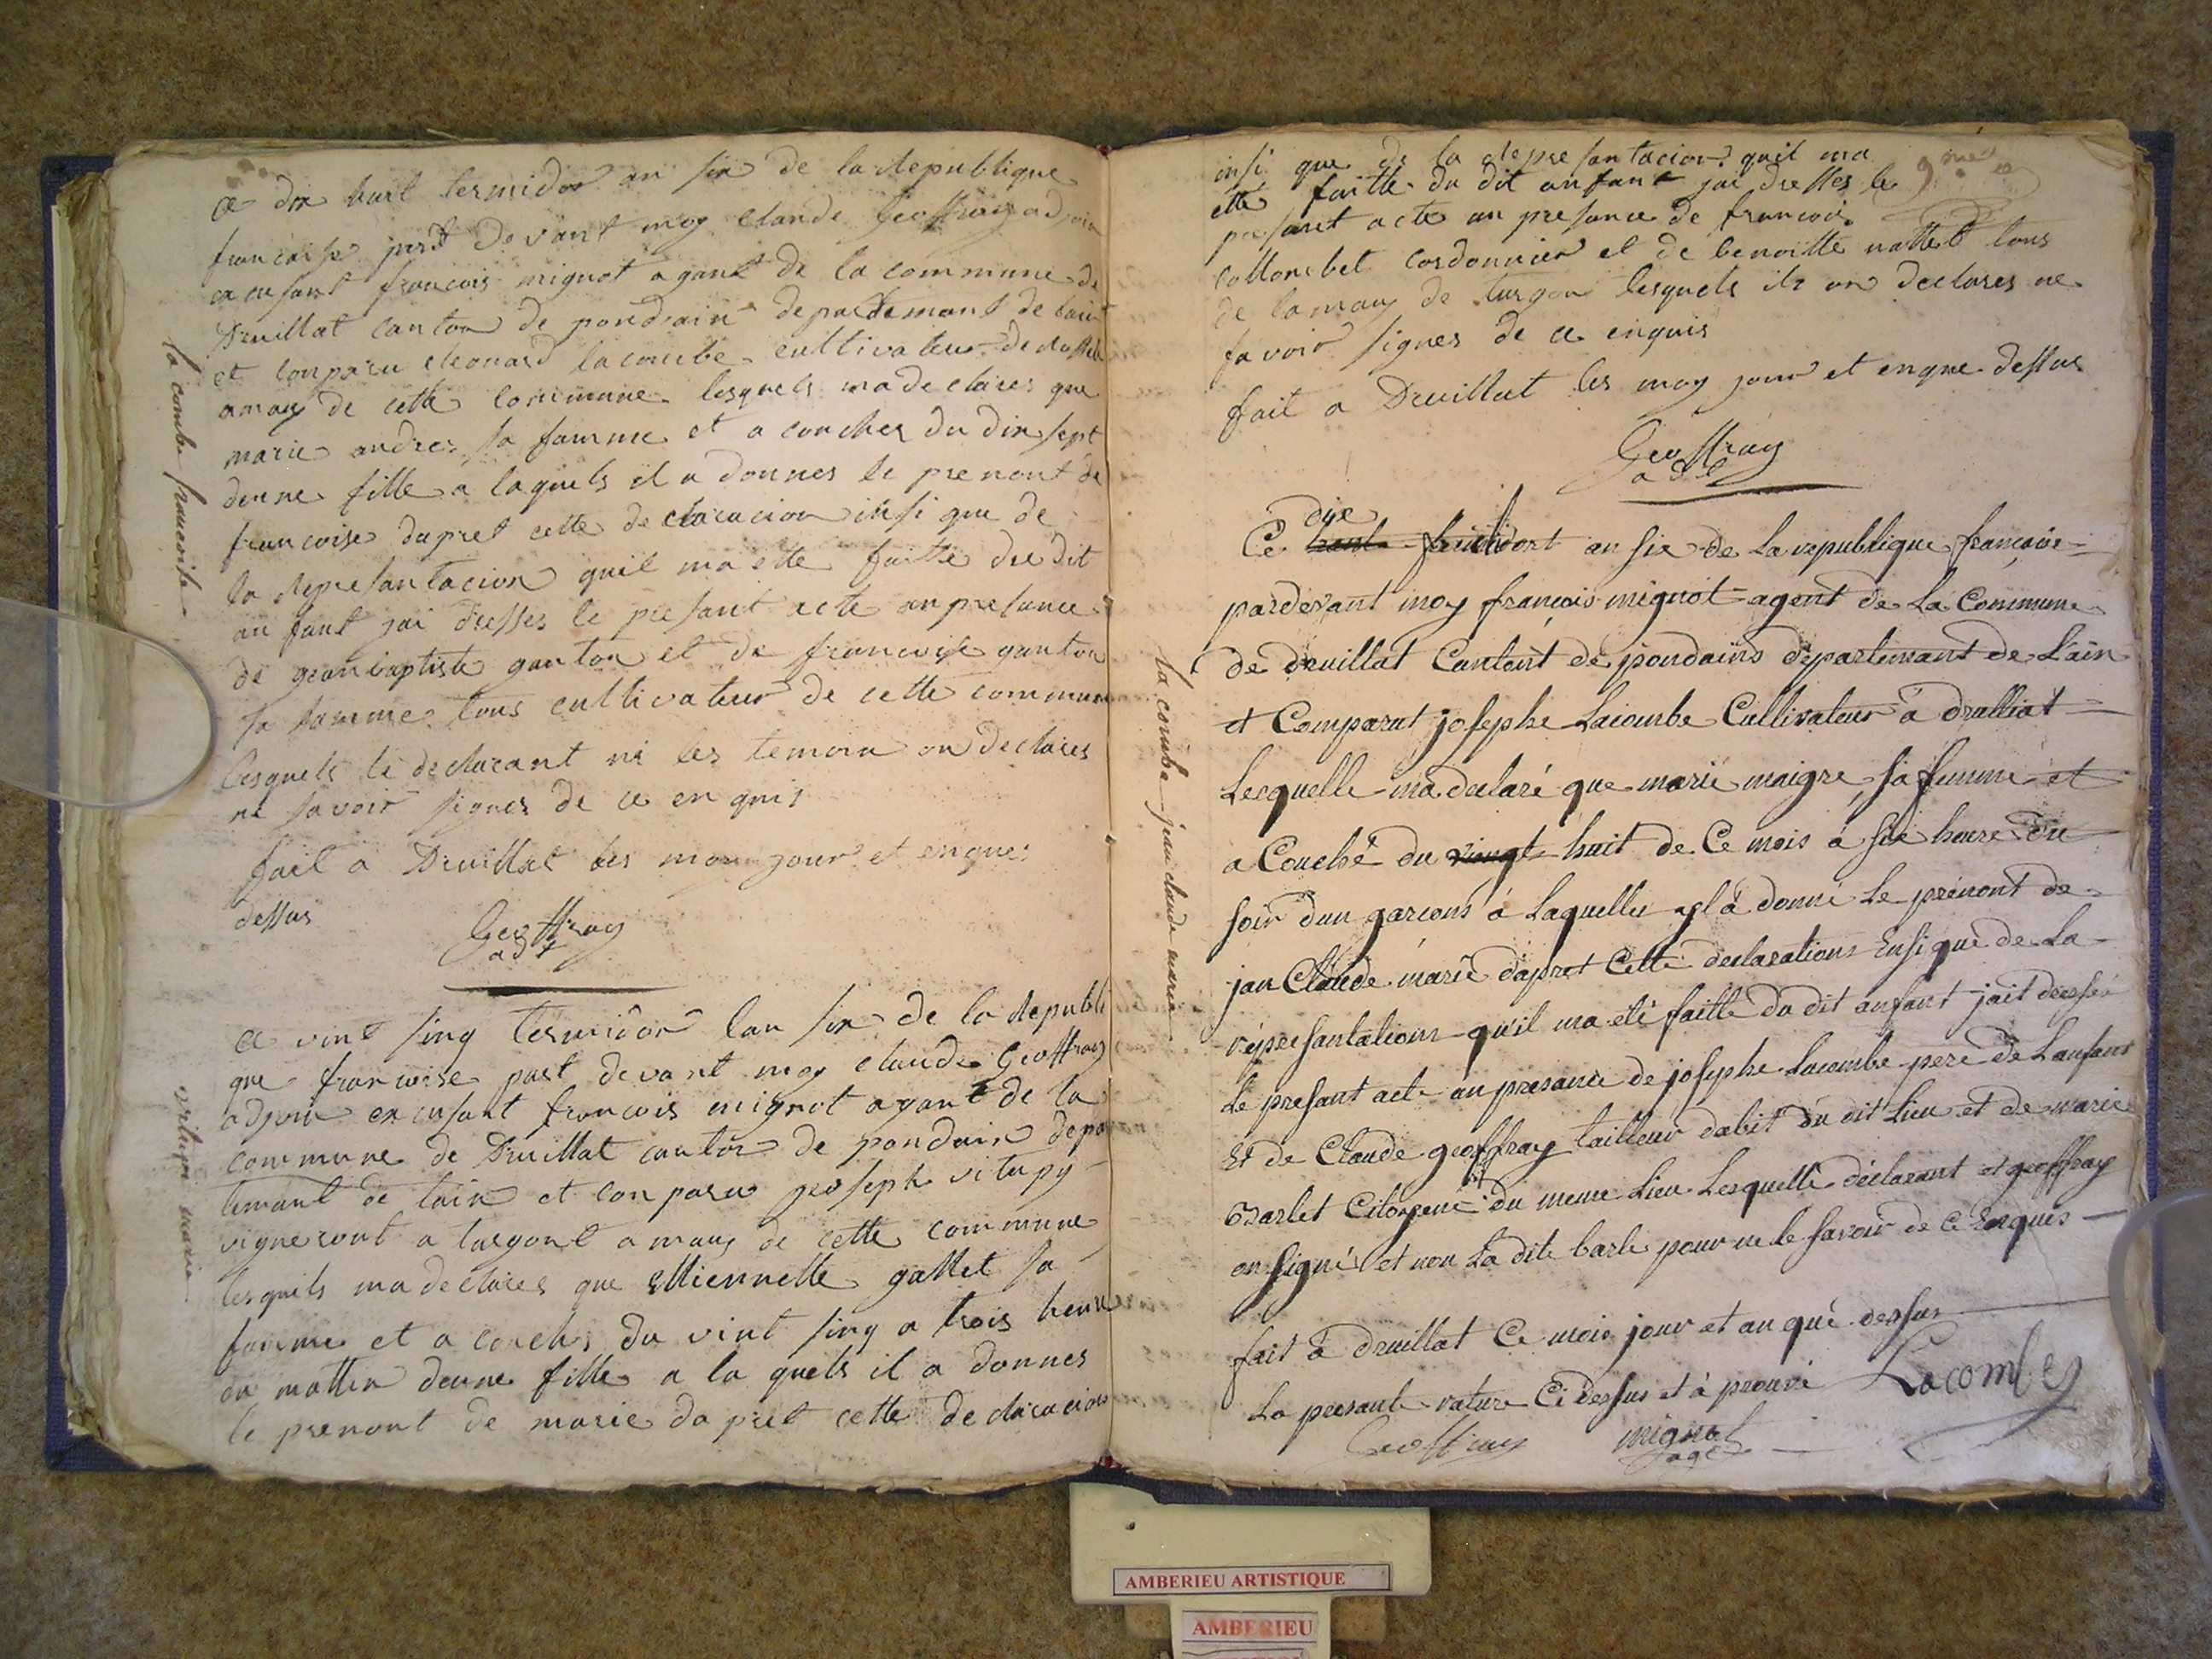 la combe francoise
ce dix huit termidor an six de la Republique
francaise part devant moy claude Geoffray adjoin
en cusant francois mignot agant de la commune de
Druillat canton de pondain departemant de lain
et conparu leonard lacombe cultivateur de
amaux de cette commune lesquels ma declares que
marie andrer sa famme et a coucher du dix sept
deune fille a laquels il a donnes le prenont de
francoise dapret cette declaracion insi que de
la Represantacion quil ma ette faitte du dit
anfant jai dresses le presant acte an presance
de gean baptiste ganton et de francoise ganton
sa famme tous cultivateur de cette commune
lesquels le declarant ni les temoin on declares
ne savoir signes de ce en quis
fait a Druillat les moy jour et enque
dessus
Geoffray
adt
vitupy marie
ce vint sinq termidor lan six de la Republi
que francoise part devant moy claude Geoffray
adjoin en cusant francois mignot agant de la
commune de Druillat canton de pondain depar
temant de lain et conparu joseph vitupy
vigneront a turgont amaux de cette commune
lesquels ma declares que Ettiennette gallet sa
famme et a couches du vint sinq a trois heure
du mattin deune fille a la quels il a donnes
le prenont de marie da pret cette declaracion
insi que de la Represantacion quil ma
ette faitte du dit anfant jai dresses le
presant acte an presance de francois
collombet cordonnier et de benoitte nallet tous
de lamaux de turgon lesquels ils on declares ne
savoir signes de ce enquis
fait a Druillat les moy jour et enque dessus
Geoffray
adt
la combe jean claude marie
dixe
Ce huit fruitidort an six de La republique francaise
pardevant moy francois mignot agent de La Commune
de druillat Cantont de pondains departemant de Lain
et Comparut josephe Lacombe Cultivateur à drulliat
Lesquelle ma declaré que marie maigre sa femme et
a Couché du vingt huit de Ce mois a six heure du
soir dun garcons à Laquelle yl à donné Le prénont de
jan Claude marie dapret Cette declarations Ensi que de La
représantations qu'il ma eté faitte du dit anfant jait dressé
Le presant acte an presance de josephe Lacombe pere de Lanfant
Et de Claude geoffray tailleur dabit du dit Lieu et de marie
Barlet Citoyene du meme Lieu Lesquelle déclarant et geoffray
on signé et non La dite barle pour ne le savoir de ce Enquis
fait à druillat Ce mois jour et an qué dessus
La presante rature Ci dessus et à prouvé
Lacombe
Geoffray
mignot
agt
AMBERIEU ARTISTIQUE
AMBERIEU